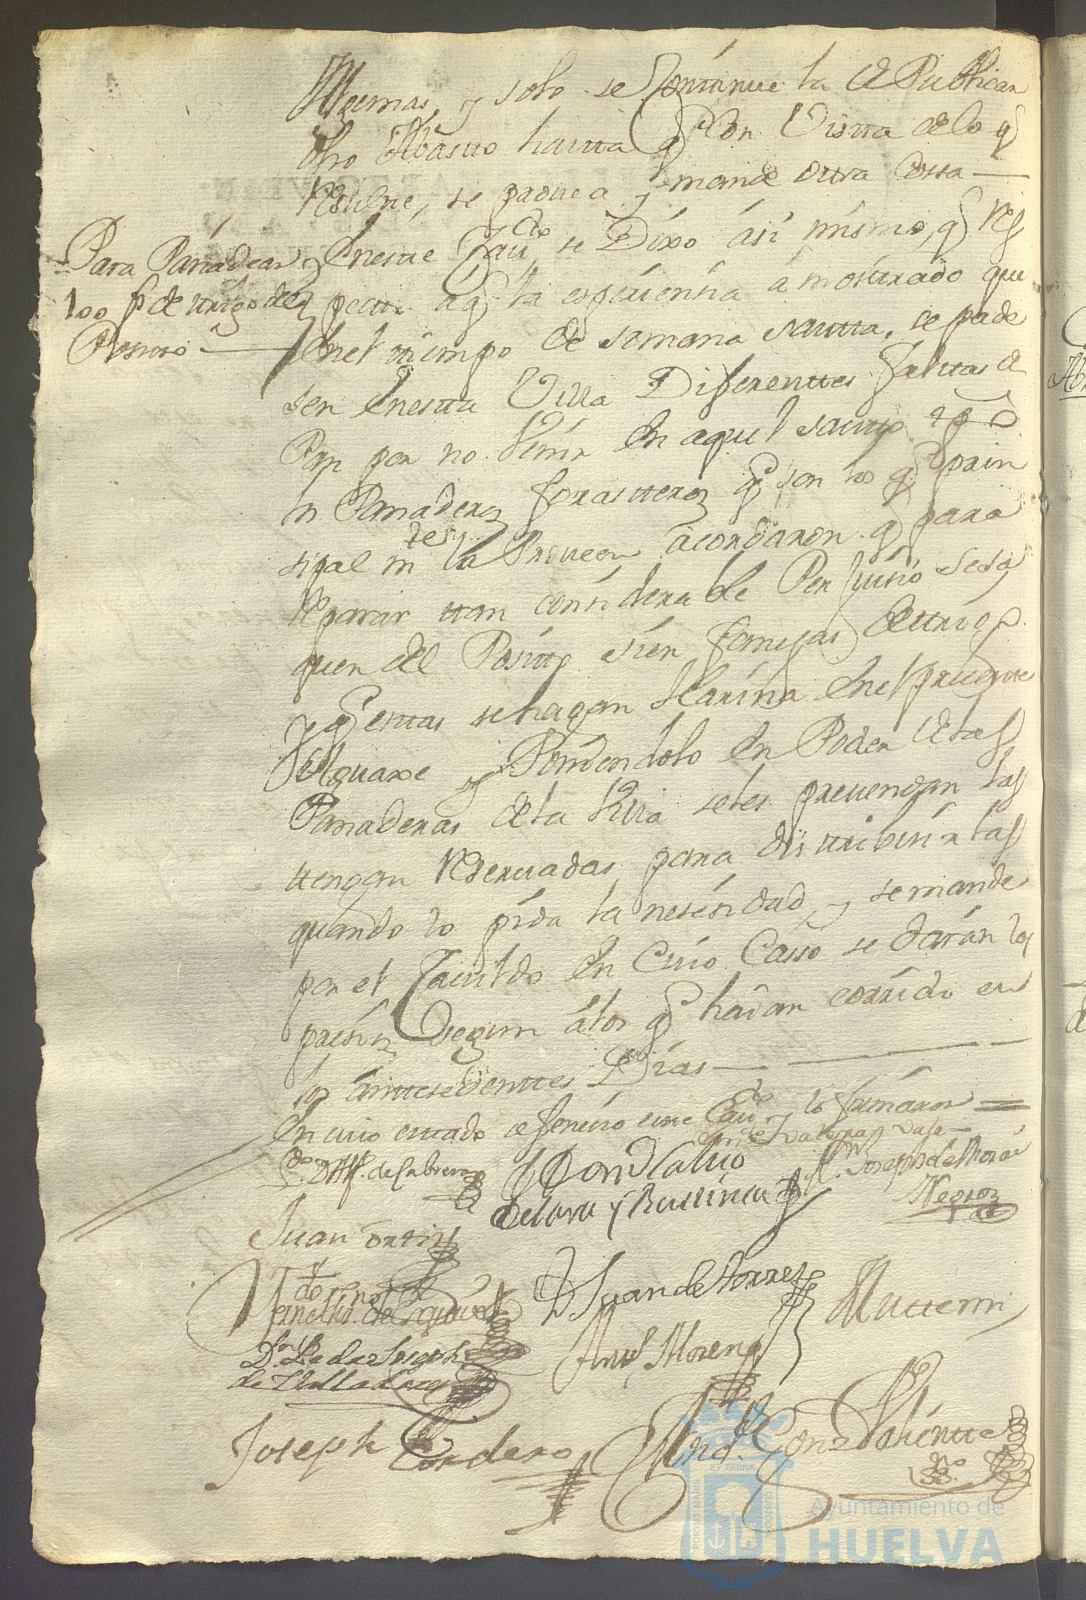 y solo se Continue la de Publicar
dho Abasto hasta q Con Vista de lo q
Resulte, se provea y mande otra Cossa
Para Panadear
100 f.s de trigo del
Posito
En este Cau.do se Dixo asi mismo, q Res
pecto a q la espiriensia a mostrado que
en el tiempo de semana santta, se pade
sen En esta Villa Diferenttes faltas de
Pan por no Venir En aquel santto tpo
los Panaderos forastteros q son los q prin
sipal mte la Proveen acordaron q para
Reparar ttan considerable Perjuisio se sa
quen del Positto sien fanegas de trigo
y q esttas se hagan Harina En el presentte
Aguaxe y Poniendolo En Poder de las
Panaderas de la Villa se les prevengan las
ttengan Reservadas para disttribuirlas
quando lo pida la nesesidad y se mande
por el Cavildo En Cuio Casso se daran los
presios segun a los q haian corrido en
los anttesedenttes Dias
En cuio estado se fenesio este Cau.do y lo firmaron
D. Alf. de Cabrera
Don Calisto
de Lara y Bustinca
Joseph de Mora
Negron
Juan Ortiz
D. Juan de Torres
Ant.o Moreno
D.n Joseph
de Villa
Joseph Cordero
And. Gonz Valientte
ss.no
Ayuntamiento de
HUELVA